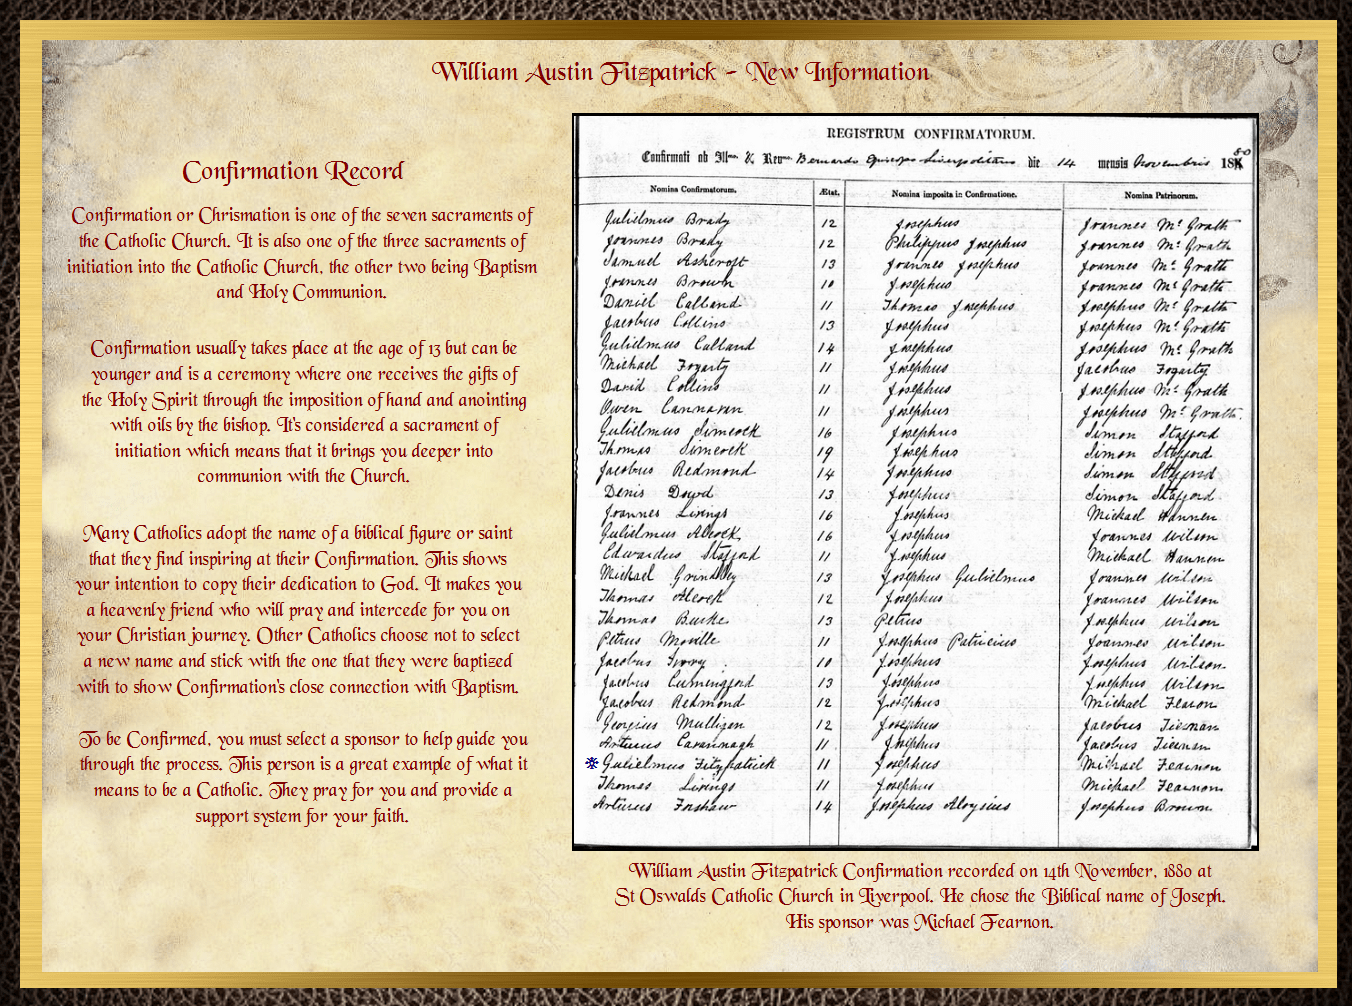 William Austin Fitzpatrick - New Information
Confirmation Record
Confirmation or Chrismation is one of the seven sacraments of
the Catholic Church. It is also one of the three sacraments of
initiation into the Catholic Church, the other two being Baptism
and Holy Communion.
Confirmation usually takes place at the age of 13 but can be
younger and is a ceremony where one receives the gifts of
the Holy Spirit through the imposition of hand and anointing
with oils by the bishop. It's considered a sacrament of
initiation which means that it brings you deeper into
communion with the Church.
Many Catholics adopt the name of a biblical figure or saint
that they find inspiring at their Confirmation. This shows
your intention to copy their dedication to God. It makes you
a heavenly friend who will pray and intercede for you on
your Christian journey. Other Catholics choose not to select
a new name and stick with the one that they were baptized
with to show Confirmation's close connection with Baptism.
To be Confirmed, you must select a sponsor to help guide you
through the process. This person is a great example of what it
means to be a Catholic. They pray for you and provide a
support system for your faith.
REGISTRUM CONFIRMATORUM.
Confirmati ab Illmo. & Revmo. Bernardo Episcopo Liverpolitano die 14 mensis Novembris 1880
Nomina Confirmatorum. Ætat. Nomina imposita in Confirmatione. Nomina Patrinorum.
Gulielmus Brady 12 Josephus Joannes Mc Grath
Joannes Brady 12 Philippus Josephus Joannes Mc Grath
Samuel Ashcroft 13 Joannes Josephus Joannes Mc Grath
Joannes Brown 10 Josephus Joannes Mc Grath
Daniel Calland 11 Thomas Josephus Josephus Mc Grath
Jacobus Collins 13 Josephus Josephus Mc Grath
Gulielmus Calland 14 Josephus Josephus Mc Grath
Michael Fogarty 11 Josephus Jacobus Fogarty
David Collins 11 Josephus Josephus Mc Grath
Owen Cannavan 11 Josephus Josephus Mc Grath
Gulielmus Simcock 16 Josephus Simon Stafford
Thomas Simcock 19 Josephus Simon Stafford
Jacobus Redmond 14 Josephus Simon Stafford
Denis Dowd 13 Josephus Simon Stafford
Joannes Livings 16 Josephus Michael Hannen
Gulielmus Alcock 16 Josephus Joannes Wilson
Edwardus Stafford 11 Josephus Michael Hannen
Michael Grindley 13 Josephus Gulielmus Joannes Wilson
Thomas Alcock 12 Josephus Joannes Wilson
Thomas Burke 13 Petrus Josephus Wilson
Petrus Moville 11 Josephus Patricius Joannes Wilson
Jacobus Ivory 10 Josephus Josephus Wilson
Jacobus 13 Josephus Josephus Wilson
Jacobus Redmond 12 Josephus Michael Fearon
Georgius Mulligan 12 Josephus Jacobus Tiernan
Arturus Cavannagh 11 Josephus Jacobus Tiernan
Gulielmus Fitzpatrick 11 Josephus Michael Fearnon
Thomas Livings 11 Josephus Michael Fearnon
Arturus Forshaw 14 Josephus Aloysius Josephus Brown
William Austin Fitzpatrick Confirmation recorded on 14th November, 1880 at
St Oswalds Catholic Church in Liverpool. He chose the Biblical name of Joseph.
His sponsor was Michael Fearnon.